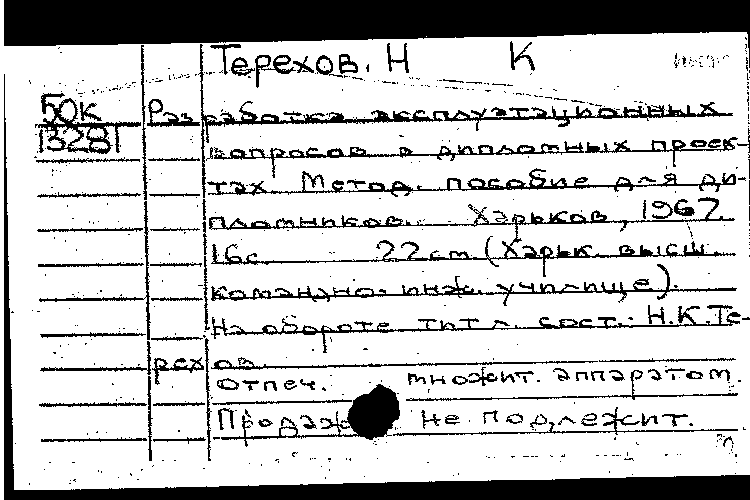 Терехов, Н К
50К Разработка эксплуатационных
13281 вопросов в дипломных проек-
тах. Метод. пособие для ди-
пломников. Харьков, 1967.
16с. 22 см (Харьк. высш.
командно-инж. училище).
На обороте титл. сост.: Н.К.Те-
рехов.
Отпеч. множит. аппаратом.
Продаже не подлежит.